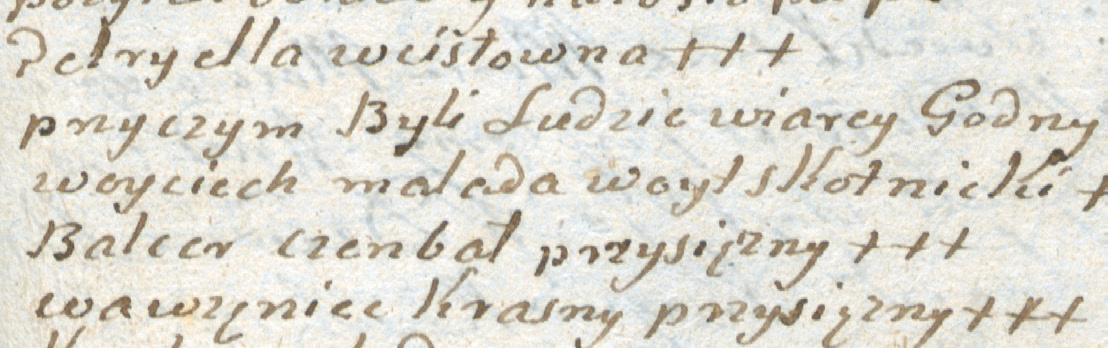 Petryella wcisłowna +++
przyczym Byli Ludzie wiarey Godny
woyciech malada woyt skotnicki +
Balcer czenbal przysięzny +++
wawrzęniec Krasny przysięzny +++